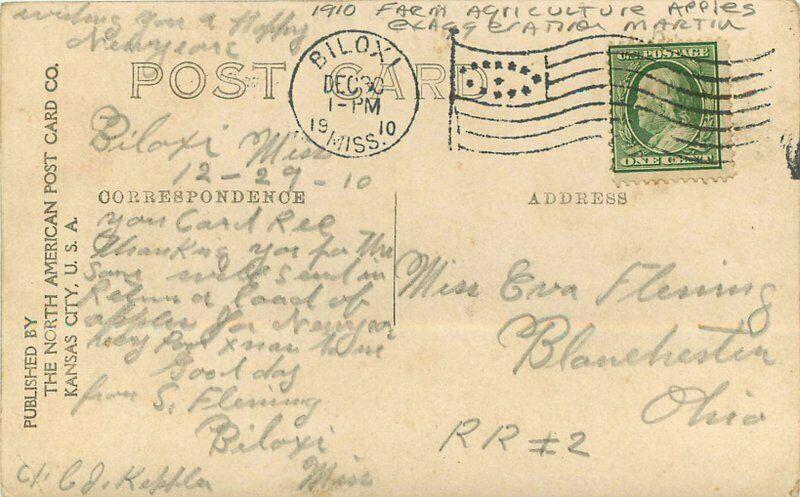 wishing you a Happy
Newyears
1910 FARM AGRICULTURE APPLES
EXAGGERATION MARTIN
POST CARD
BILOXI
DEC 30
1-PM
1910
MISS.
U.S. POSTAGE
ONE CENT
PUBLISHED BY
THE NORTH AMERICAN POST CARD CO.
KANSAS CITY, U. S. A.
Biloxi Miss
12-29-10
CORRESPONDENCE
your Card Rec
Thanking you for the
Same will send in
Return a load of
apples for Newyear
Good day
from S. Fleming
Biloxi
Miss
c/o C J. Keppler
ADDRESS
Miss Eva Fleming
Blanchester
Ohio
RR #2